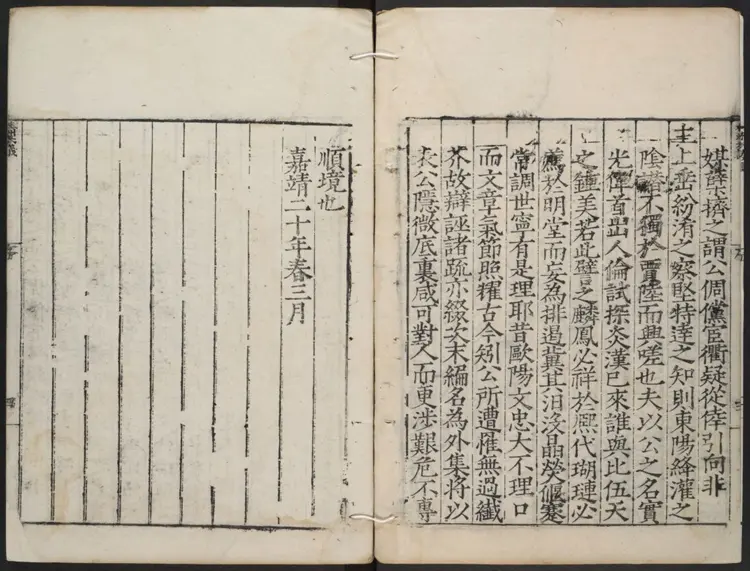 媒蘖擠之謂公倜儻宦衢疑從倖引向非
主上垂紛洧之察堅特達之知則東陽絳灌之
陰譖不獨於賈陸而興嗟也夫以公之名實
光偉首出人倫試探炎漢已來誰與比伍天
之鍾美若此譬之麟鳳必祥於熙代瑚璉必
薦於明堂而妄為排遏冀其汨沒晶熒偃蹇
常調世寧有是理耶昔歐陽文忠大不理口
而文章氣節照耀古今矧公所遭罹無過纖
芥故辯誣諸疏亦綴次末編名為外集將以
表公隱微底裏咸可對人而更涉艱危不專
順境也
嘉靖二十年春三月